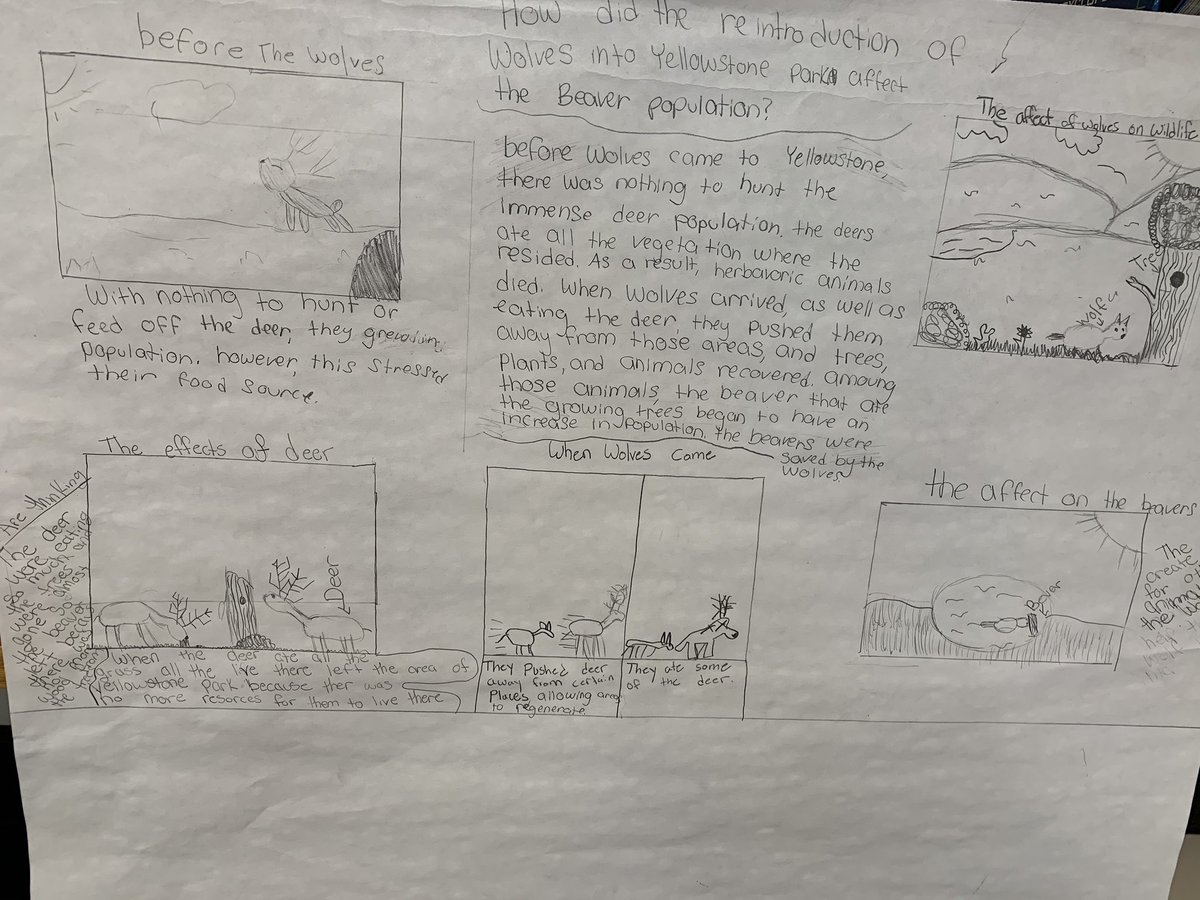 How did the reintroduction of
Wolves into Yellowstone Park affect
the Beaver population?
before The Wolves
With nothing to hunt or
feed off the deer, they grew in
population. however, this stressed
their food source.
before Wolves came to Yellowstone,
there was nothing to hunt the
immense deer population. the deers
ate all the vegetation where the
resided. As a result, herbavoric animals
died. When Wolves arrived, as well as
eating the deer, they pushed them
away from those areas, and trees,
Plants, and animals recovered. amoung
those animals, the beaver that ate
the growing trees began to have an
increase in population. the beavers were
saved by the
Wolves
The affect of wolves on wildlife
Tree
Wolf
The effects of deer
Are thinking
The deer
were
much eating
Deer
When the deer ate all the
grass all the live there left the area of
Yellowstone Park. because ther was
no more resorces for them to live there
When Wolves Came
They Pushed deer
away from certain
Places, allowing areas
to regenerate.
They ate some
of the deer.
the affect on the beavers
Bever
The
create
for